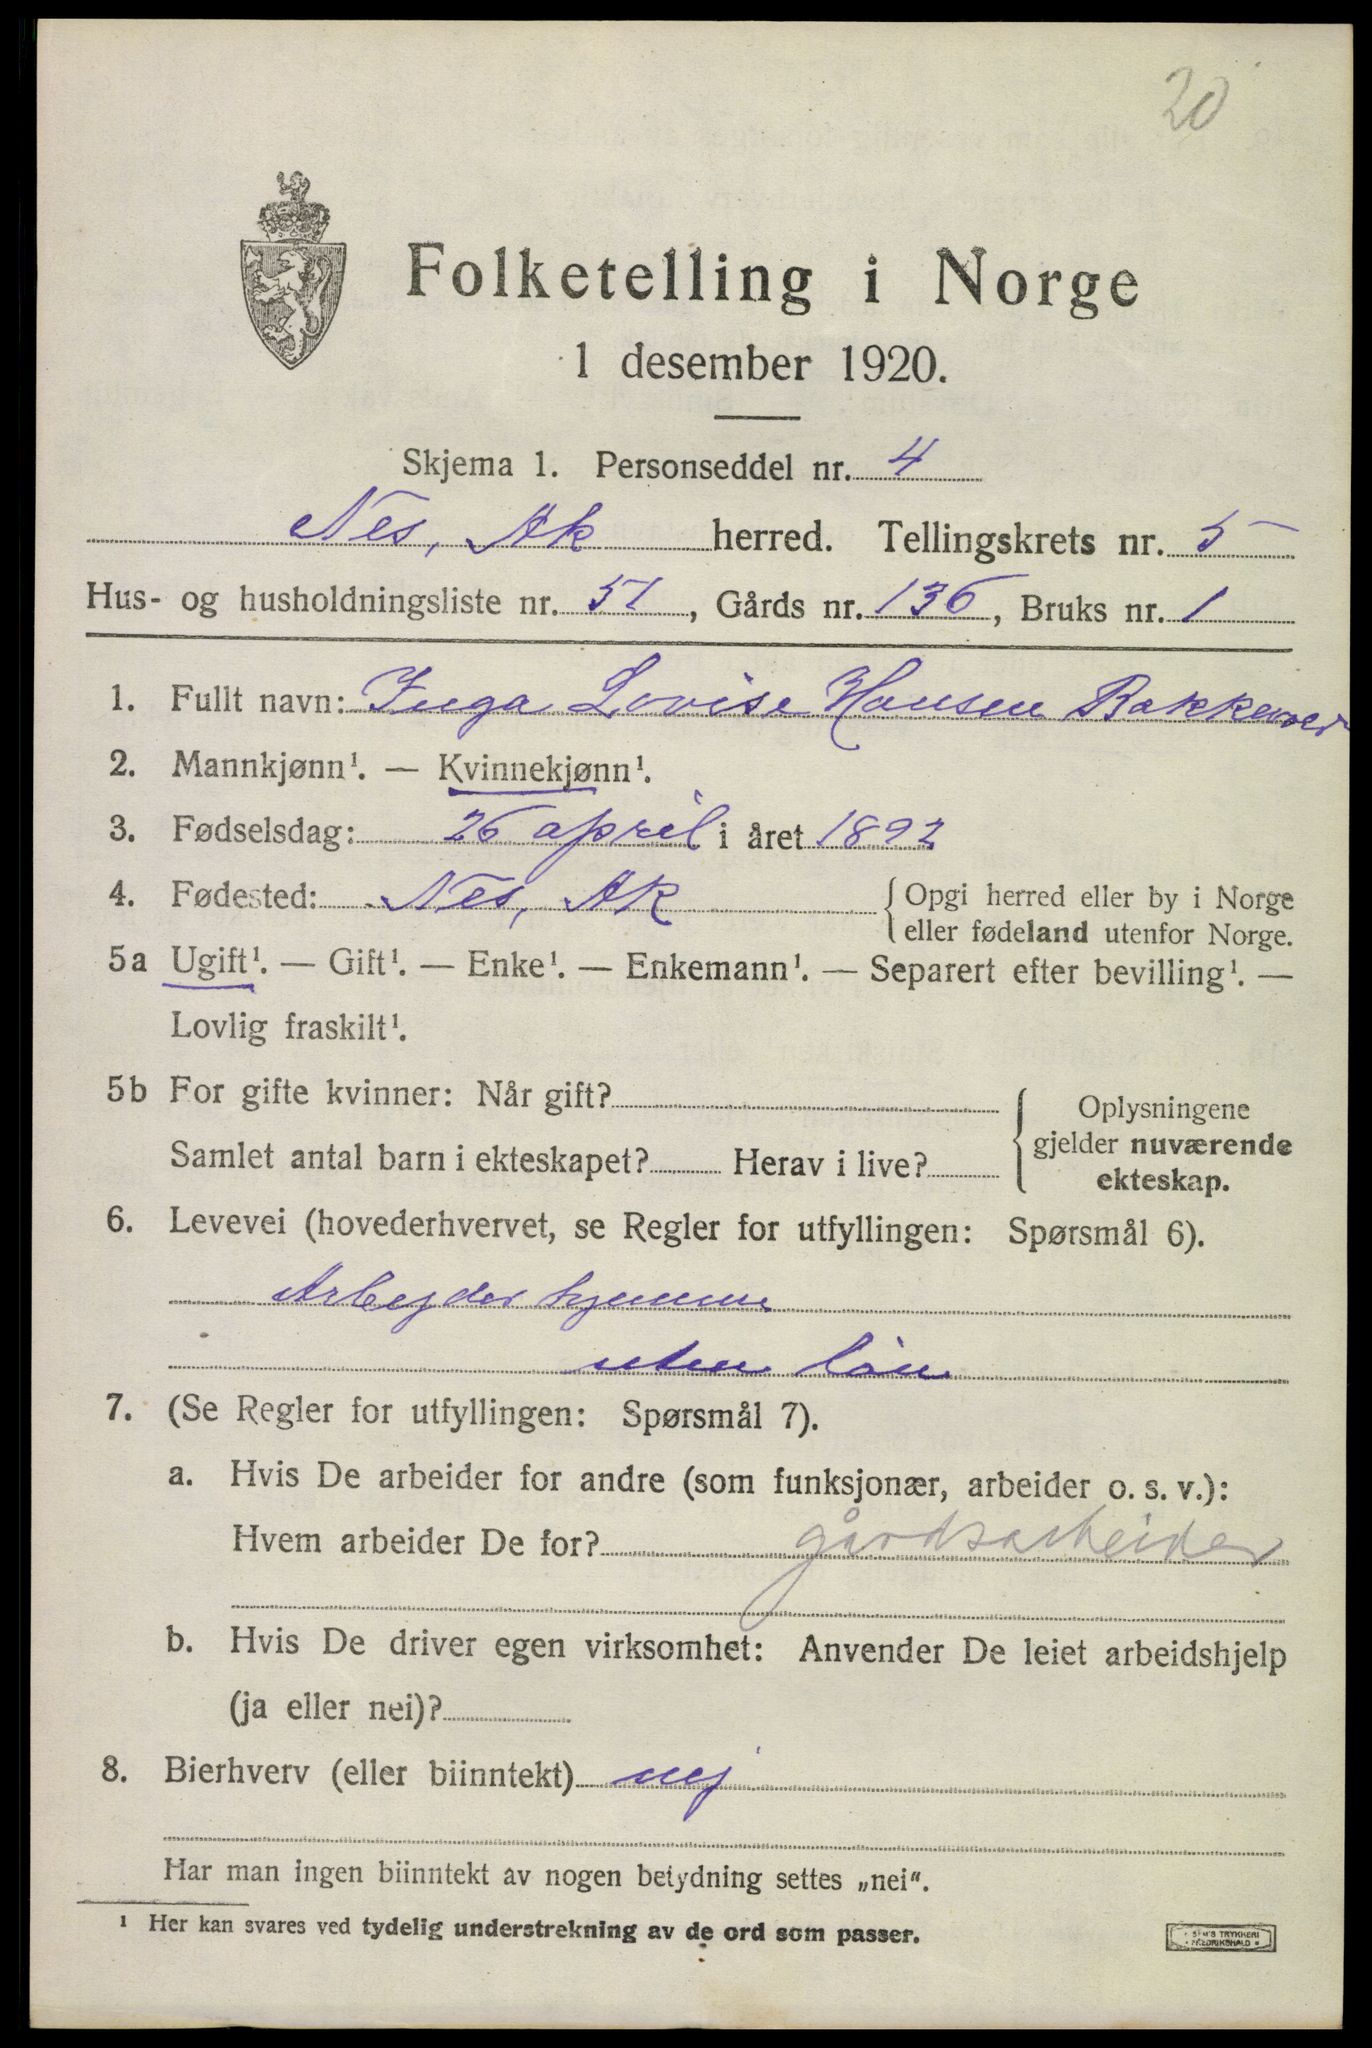 20
Folketelling i Norge
1 desember 1920.
Skjema 1. Personseddel nr. 4
Nes, Ak herred. Tellingskrets nr. 5
Hus- og husholdningsliste nr. 51, Gårds nr. 136, Bruks nr. 1
1. Fullt navn: Inga Lovise Hansen
2. Mannkjønn¹. — Kvinnekjønn¹.
3. Fødselsdag: 26 april i året 1892
4. Fødested: Nes, Ak {Opgi herred eller by i Norge
eller fødeland utenfor Norge.
5a Ugift¹. — Gift¹. — Enke¹. — Enkemann¹. — Separert efter bevilling¹. —
Lovlig fraskilt¹.
5b For gifte kvinner: Når gift? Oplysningene
gjelder nuværende
Samlet antal barn i ekteskapet? Herav i live?
ekteskap.
6. Levevei (hovederhvervet, se Regler for utfyllingen: Spørsmål 6).
Arbejder hjemme
uten løn
7. (Se Regler for utfyllingen: Spørsmål 7).
a. Hvis De arbeider for andre (som funksjonær, arbeider o. s. v.):
Hvem arbeider De for? gårdsarbeider
b. Hvis De driver egen virksomhet: Anvender De leiet arbeidshjelp
(ja eller nei)?
8. Bierhverv (eller biinntekt) nej
Har man ingen biinntekt av nogen betydning settes „nei".
¹ Her kan svares ved tydelig understrekning av de ord som passer.
SEM'S TRYKKERI
FREDRIKSHALD